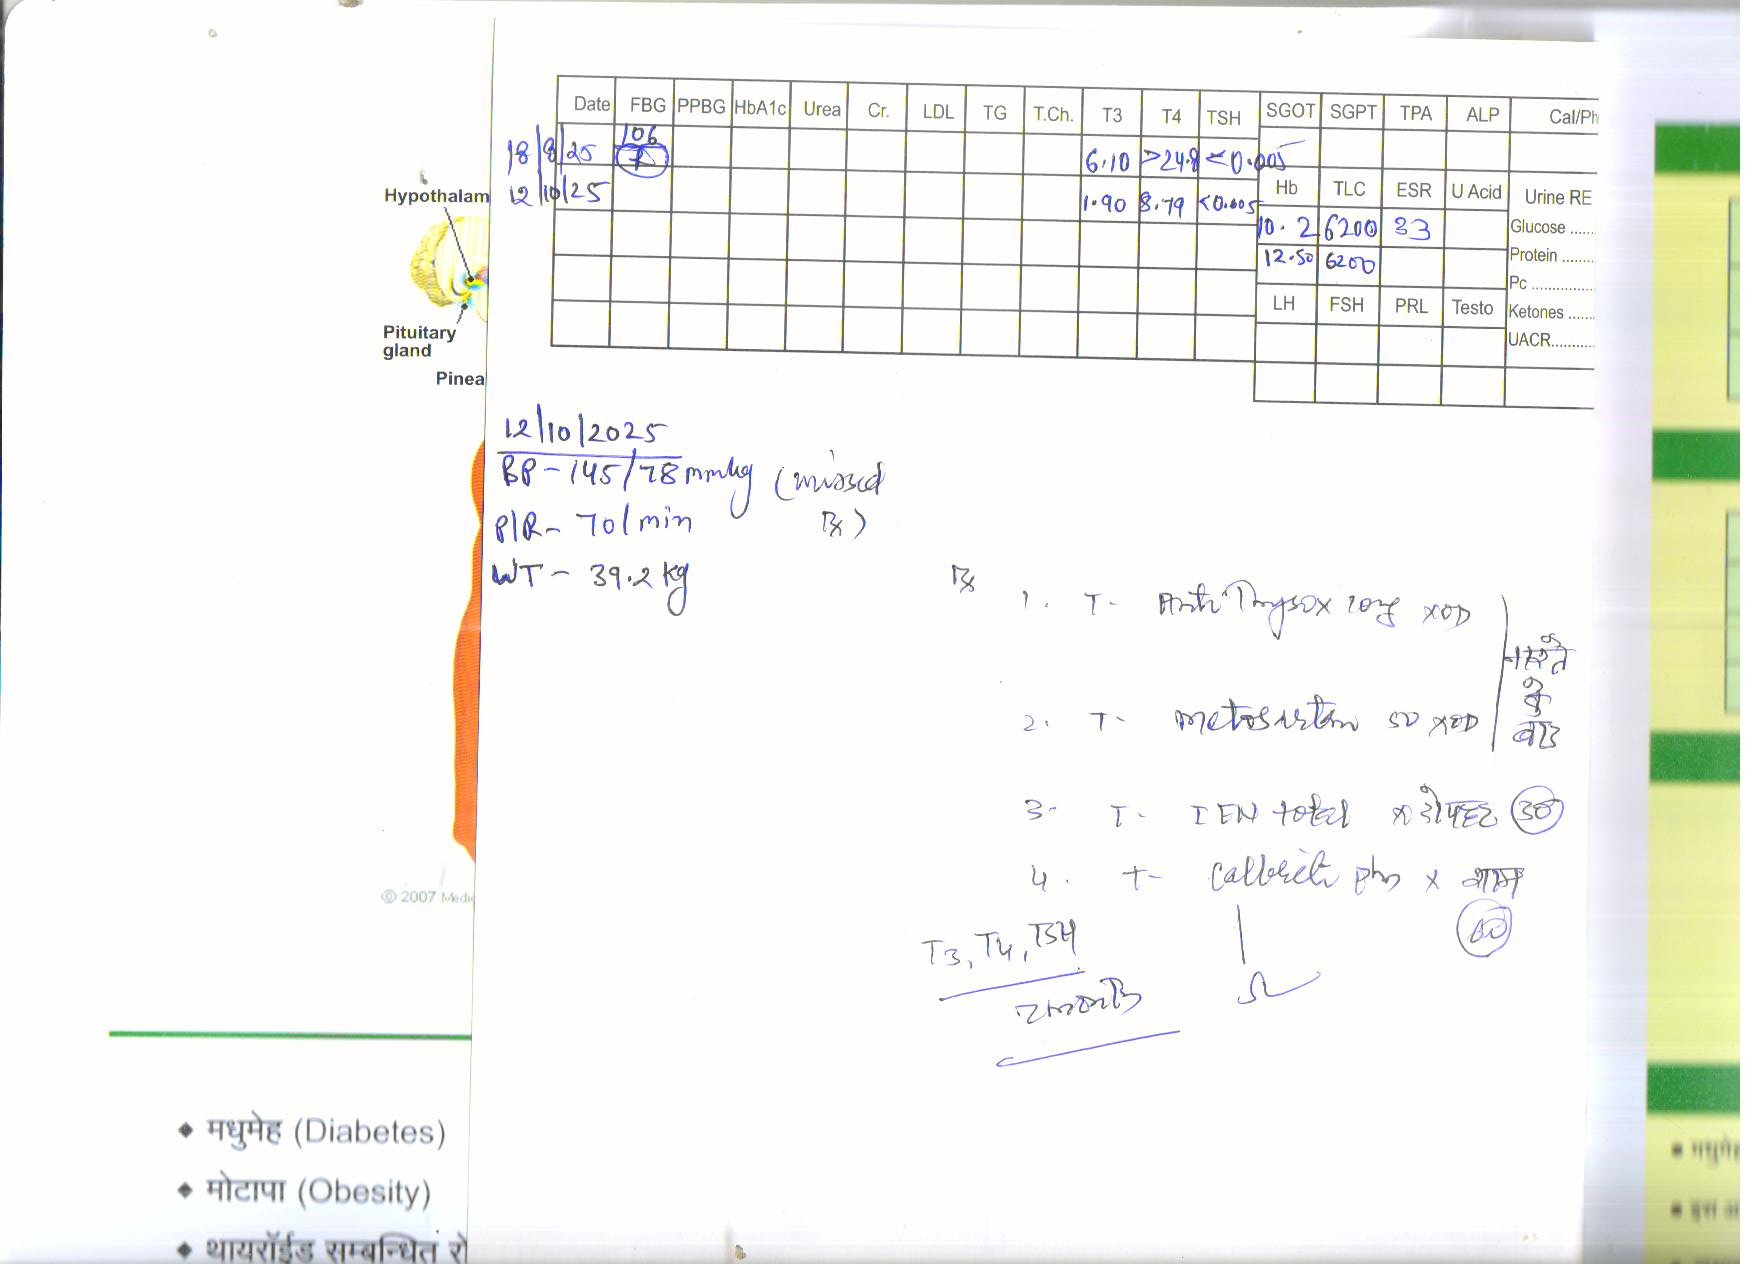 Date FBG PPBG HbA1c Urea Cr. LDL TG T.Ch. T3 T4 TSH SGOT SGPT TPA ALP Cal/Ph
18/8/25 106 6.10 >24.8 <0.005
12/10/25 1.90 8.79 <0.005
Hb TLC ESR U Acid Urine RE
10.2 6200 33 Glucose ......
12.50 6200 Protein ........
Pc ..............
LH FSH PRL Testo Ketones ......
UACR..........
Hypothalam
Pituitary
gland
Pinea
12/10/2025
BP - 145/78 mmhg (missed
Rx)
P/R - 70/min
WT - 39.2 kg
Rx
1. T- Anti Thyrox 10mg xOD
2. T- metosartan 50 xOD
नाश्ते
के
बाद
3- T- IEN total x दोपहर 30
4. T- x शाम
60
T3, T4, TSH
2 months
© 2007 Medi
◆ मधुमेह (Diabetes)
◆ मोटापा (Obesity)
◆ थायरॉईड सम्बन्धित रो